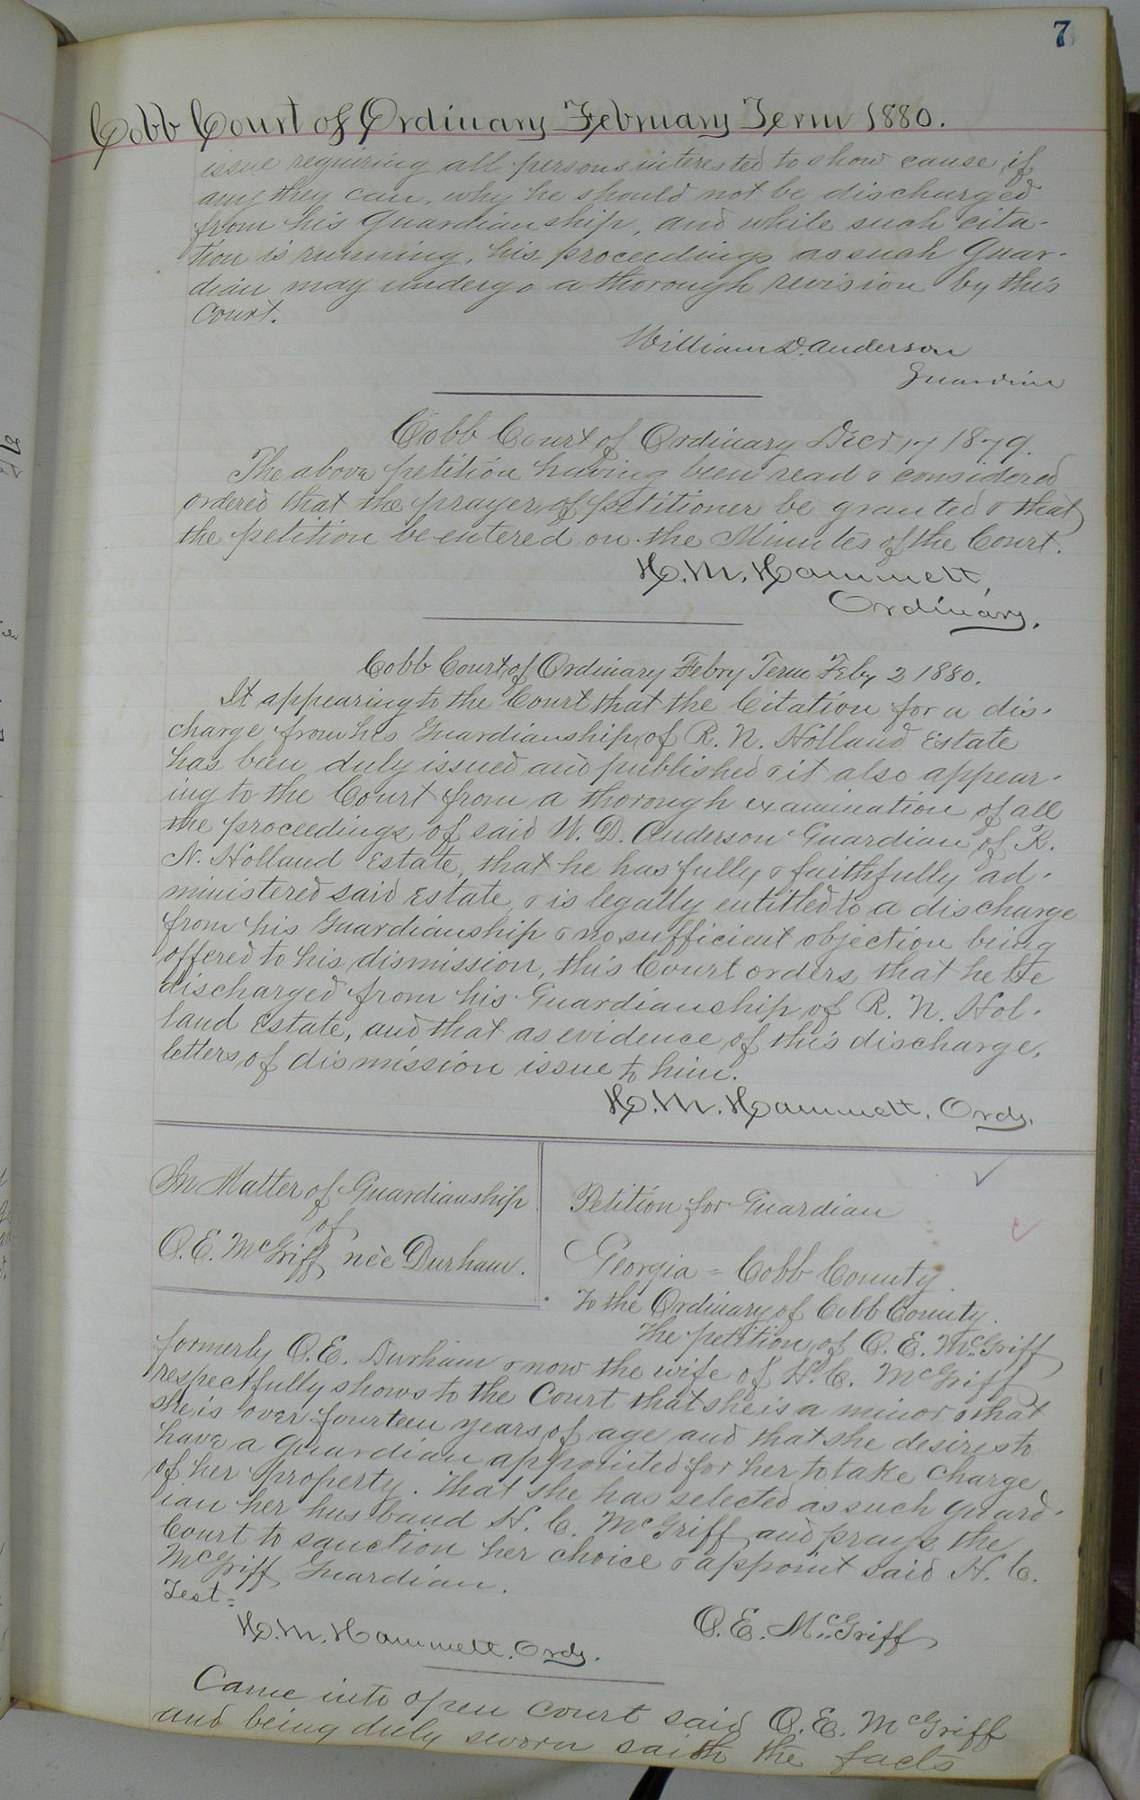 7
Cobb Court of Ordinary February Term 1880.
issue requiring all persons interested to show cause, if
any they can, why he should not be discharged
from his Guardianship, and while such cita-
tion is running, his proceedings as such Guar-
dian may undergo a thorough revision by this
Court.
William D. Anderson
Guardian
Cobb Court of Ordinary Decr 17 1879.
The above petition having been read & considered
ordered that the prayer of petitioner be granted & that
the petition be entered on the Minutes of the Court.
H. M. Hammett,
Ordinary.
Cobb Court of Ordinary Febry Term Feby 2 1880.
It appearing to the Court that the Citation for a dis-
charge from his Guardianship of R. N. Holland Estate
has been duly issued and published & it also appear-
ing to the Court from a thorough examination of all
the proceedings of said W. D. Anderson Guardian of R.
N. Holland Estate, that he has fully & faithfully ad-
ministered said Estate, & is legally entitled to a discharge
from his Guardianship & no sufficient objection being
offered to his dismission, this Court orders that he be
discharged from his Guardianship of R. N. Hol-
land Estate, and that as evidence of this discharge,
letters of dismission issue to him.
H. M. Hammett, Ordy.
In Matter of Guardianship
of
O. E. McGriff, née Durham.
Petition for Guardian
Georgia = Cobb County.
To the Ordinary of Cobb County.
The petition of O. E. McGriff
formerly O. E. Durham & now the wife of H. C. McGriff
respectfully shows to the Court that she is a minor & that
she is over fourteen years of age and that she desires to
have a guardian appointed for her to take charge
of her property. That she has selected as such guard-
ian her husband H. C. McGriff and prays the
Court to sanction her choice & appoint said H. C.
McGriff Guardian.
Test=
O. E. McGriff
H. M. Hammett, Ordy.
Came into open Court said O. E. McGriff
and being duly sworn saith the facts